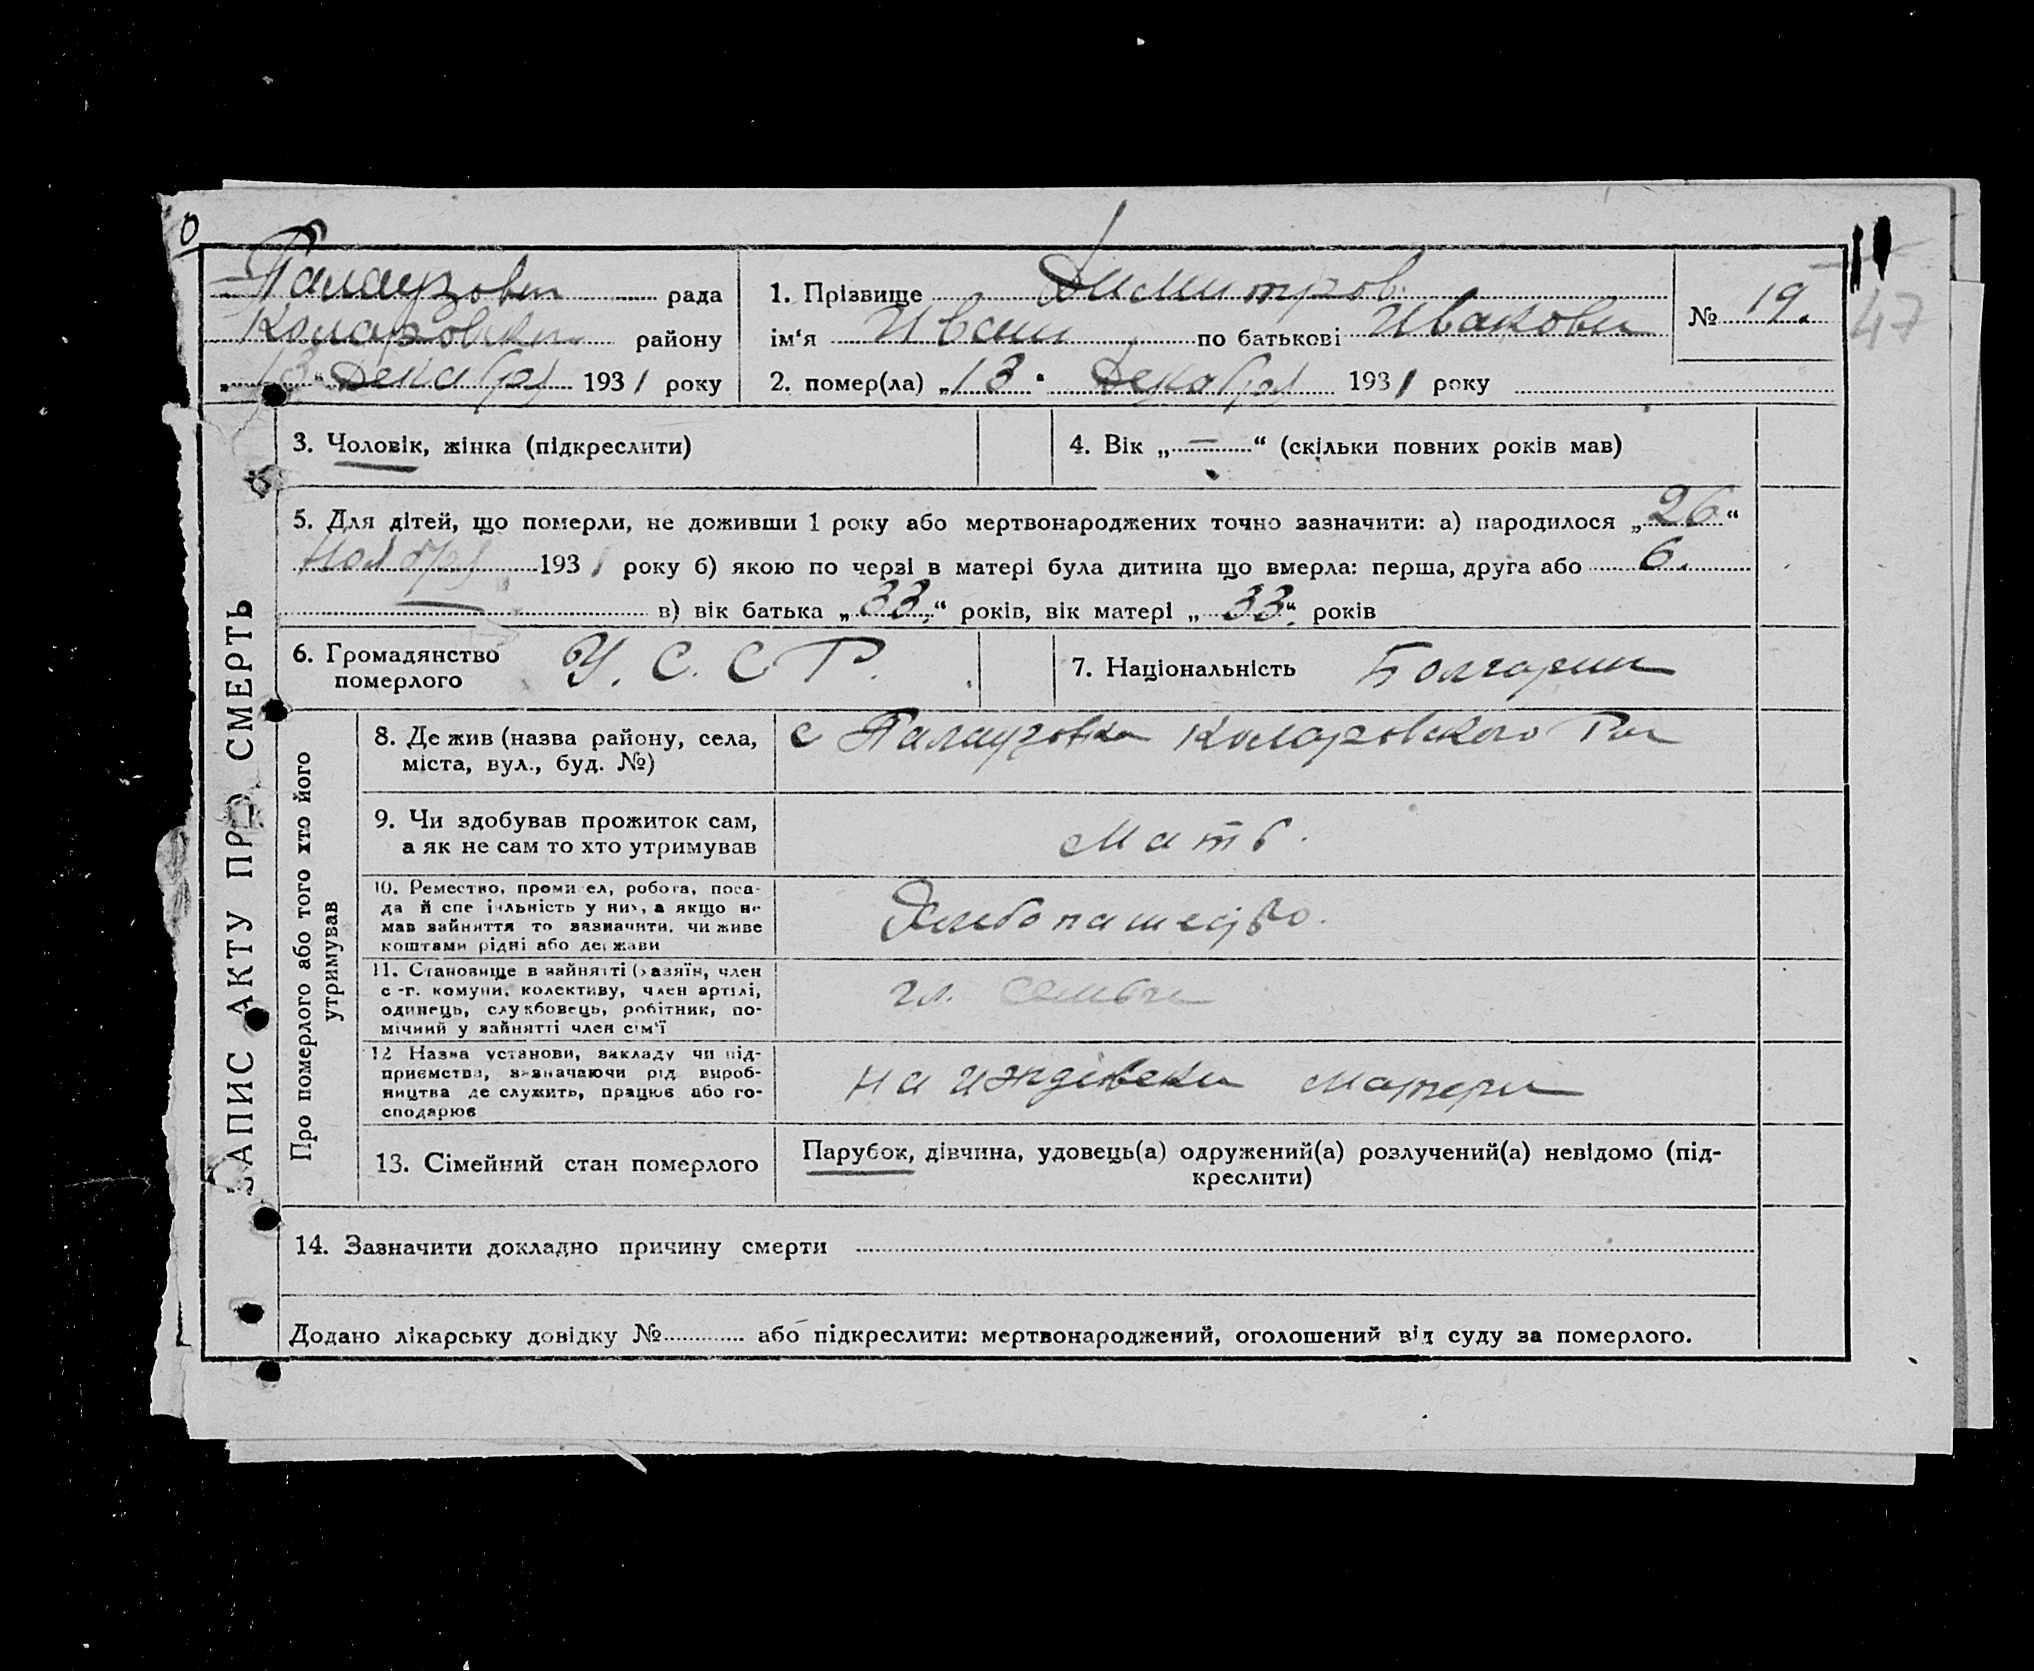 Палаузовк рада
Коларовск району
"13" Декабря 1931 року
1. Прізвище Димитров
ім'я Иван по батькові Ивакови
2. помер(ла) „13" Декабря 1931 року
№ 19.
47
ЗАПИС АКТУ ПРО СМЕРТЬ
3. Чоловік, жінка (підкреслити)
4. Вік „—" (скільки повних років мав)
5. Для дітей, що померли, не доживши 1 року або мертвонароджених точно зазначити: а) народилося „26"
Ноября 1931 року б) якою по черзі в матері була дитина що вмерла: перша, друга або 6.
в) вік батька „33" років, вік матері „33" років
6. Громадянство
померлого
У. С. С. Р.
7. Національність Болгарин
Про померлого або того хто його
утримував
8. Де жив (назва району, села,
міста, вул., буд. №)
с Палаузовка Коларовского Р
9. Чи здобував прожиток сам,
а як не сам то хто утримував
Мать.
10. Ремество, промисел, робота, поса-
да й спеціяльність у них, а якщо не
мав зайняття то зазначити, чи живе
коштами рідні або держави
Хлебопашество.
11. Становище в зайнятті (хазяїн, член
с.-г. комуни, колективу, член артілі,
одинець, службовець, робітник, по-
мічний у зайнятті член сім'ї
гл. семьи
12 Назва установи, закладу чи під-
приємства, зазначаючи рід вироб-
ництва де служить, працює або го-
сподарює
на иждевени матери
13. Сімейний стан померлого
Парубок, дівчина, удовець(а) одружений(а) розлучений(а) невідомо (під-
креслити)
14. Зазначити докладно причину смерти
Додано лікарську довідку № або підкреслити: мертвонароджений, оголошений від суду за померлого.